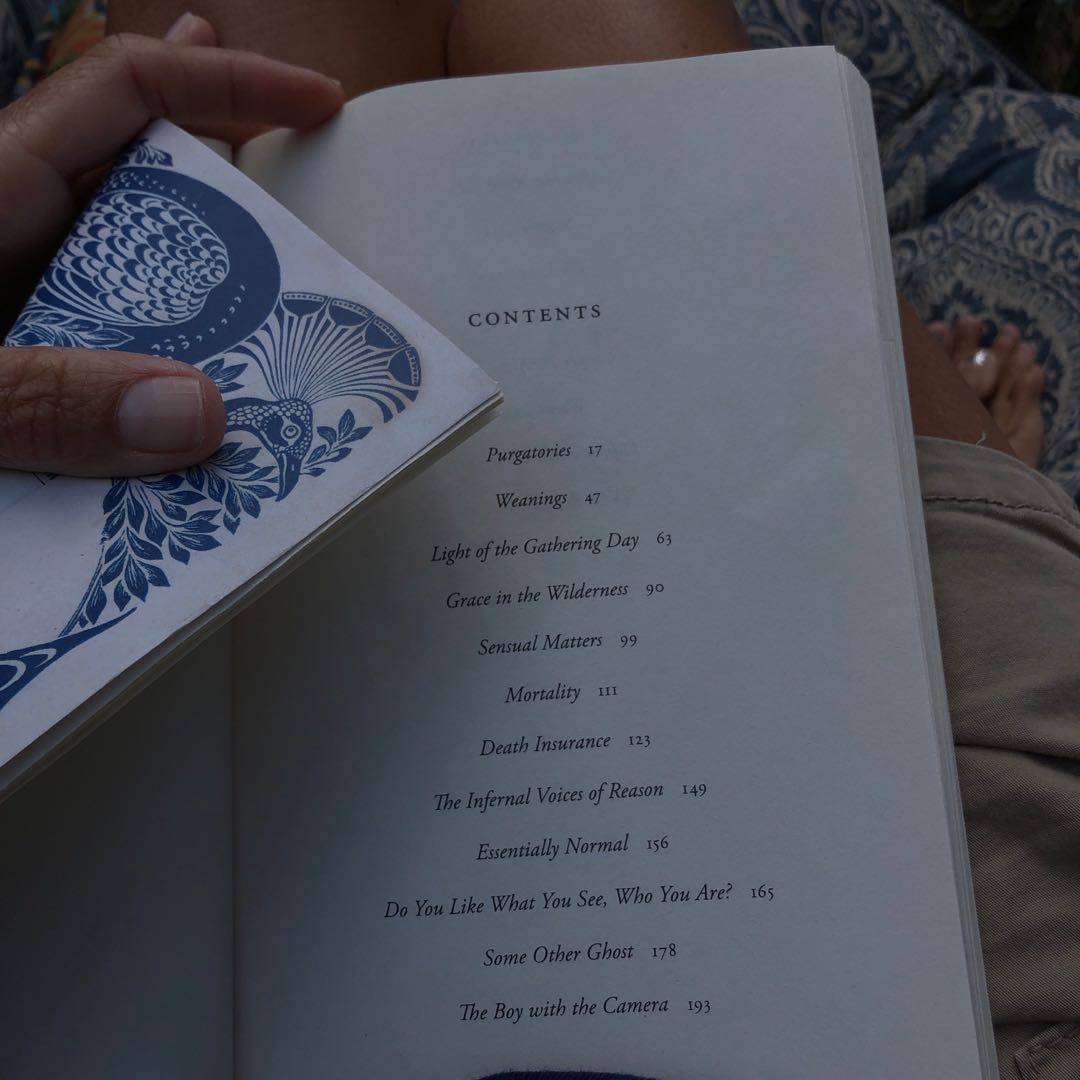 CONTENTS
Purgatories 17
Weanings 47
Light of the Gathering Day 63
Grace in the Wilderness 90
Sensual Matters 99
Mortality 111
Death Insurance 123
The Infernal Voices of Reason 149
Essentially Normal 156
Do You Like What You See, Who You Are? 165
Some Other Ghost 178
The Boy with the Camera 193